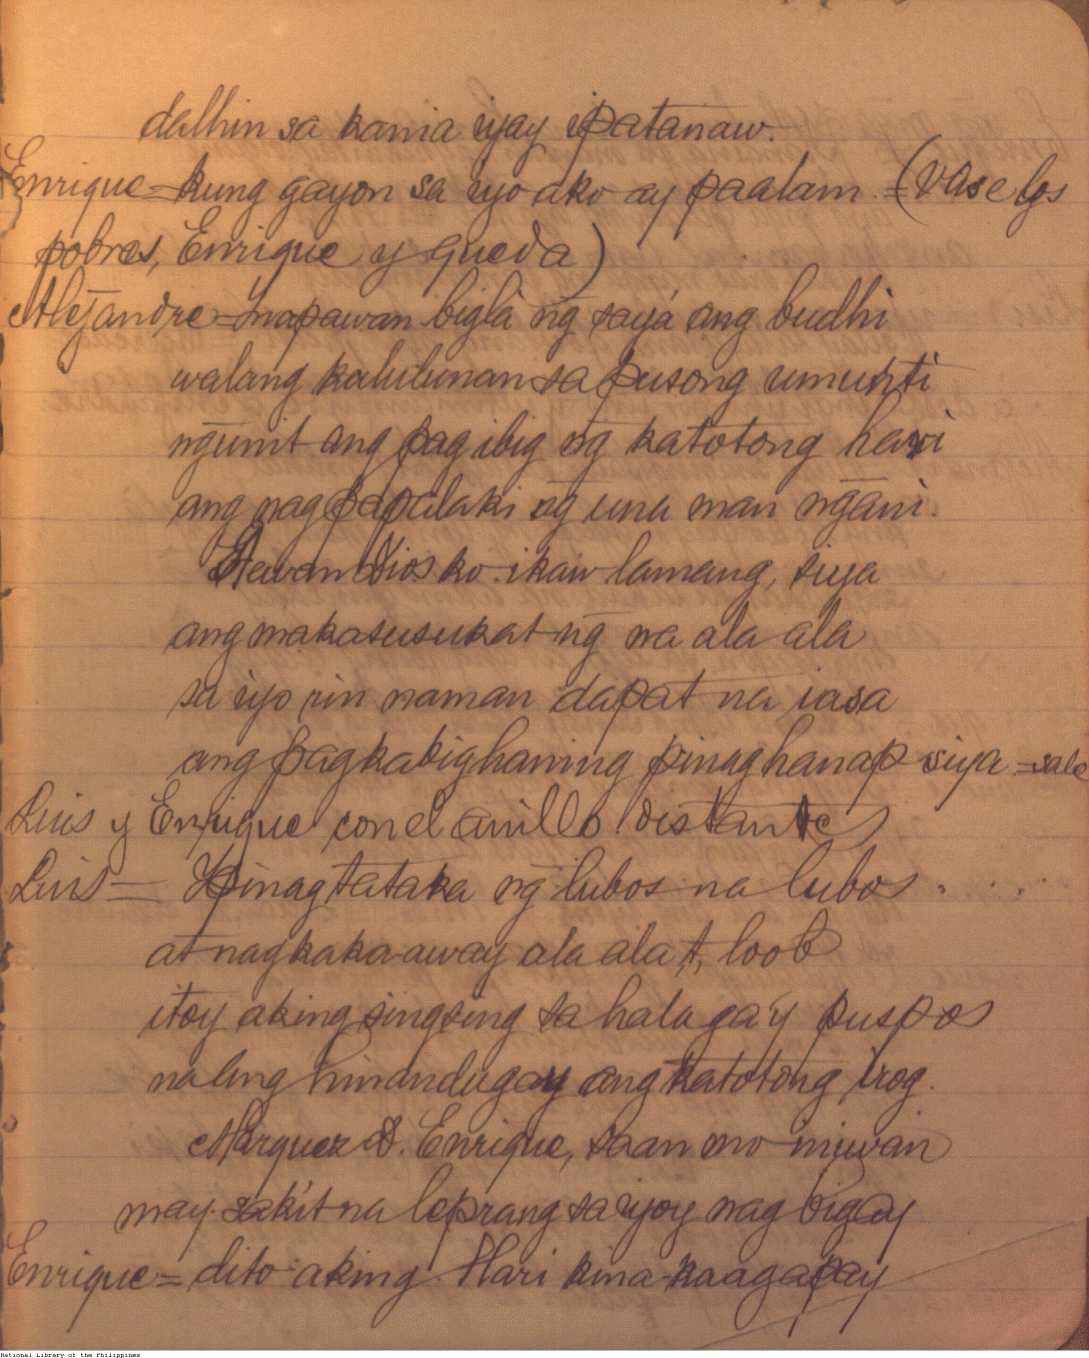 dalhin sa kania iyay ipatanaw.
Enrique = kung gayon sa iyo ako ay paalam. = (vase los
pobres, Enrique y queda)
Alejandre = napawan bigla ng̃ saya ang budhi
walang kalulunan sa pusong umunti
ng̃unit ang pag ibig ng̃ katotong hari
ang nagpapalaki ng̃ una man ng̃ani.
Dios ko ikaw lamang, siya
ang makasusukat ng̃ na ala ala
sa iyo rin naman dapat na iasa
ang pagkabighaning pinaghanap siya = sale
Luis y Enrique con el anillo distantes
Luis = Pinagtataka ng̃ lubos na lubos . . . .
at nagkaka-away ala ala,t, loob
itoy aking singsing sa halaga'y puspos
na ang hinandugay ang katotong irog.
Marquez D. Enrique, saan mo iniwan
may sakit na leprang sa iyoy nag bigay
Enrique = dito aking Hari kina-kaagapay
National Library of the Philippines